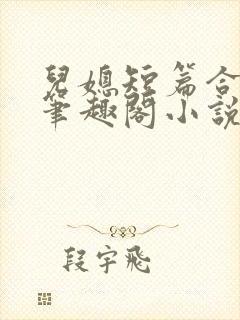 兒媳短篇合
筆趣閣小說
段宇飛